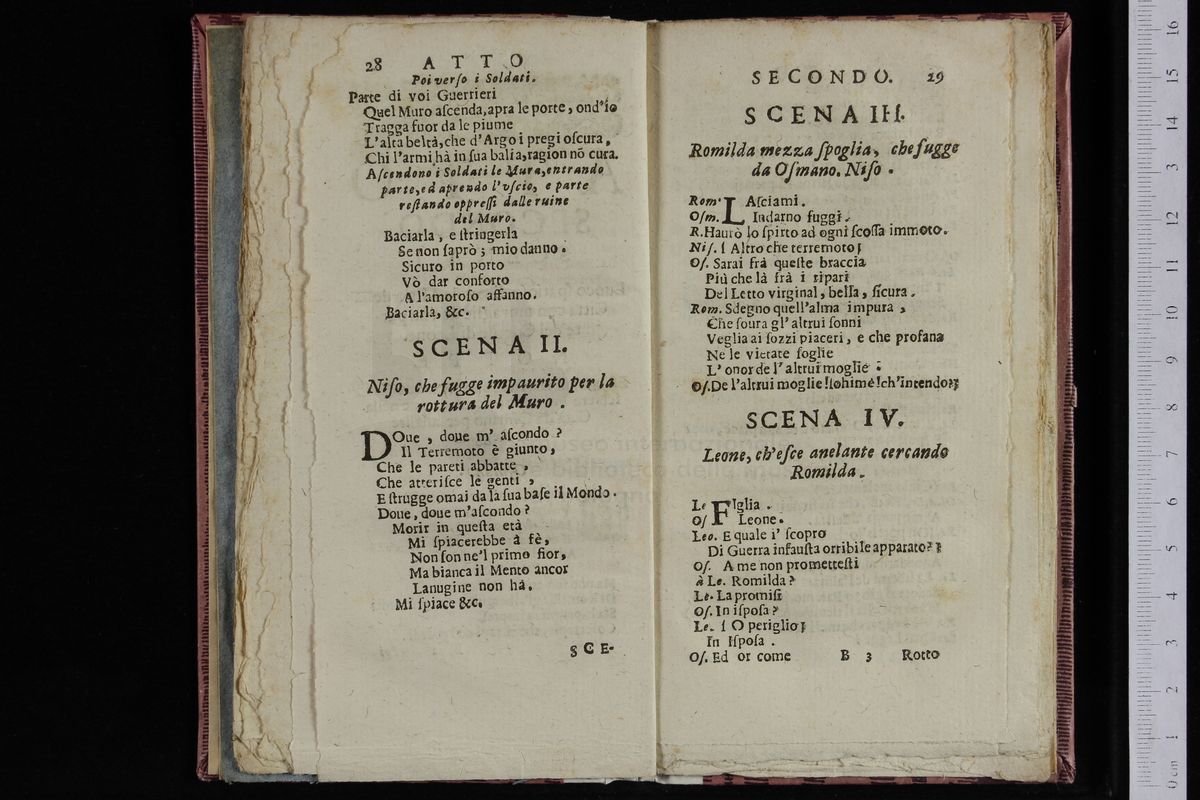 28 ATTO
Poi verſo i Soldati.
Parte di voi Guerrieri
Quel Muro aſcenda, apra le porte, ond'io
Tragga fuor da le piume
L'alta beltà, che d'Argo i pregi oſcura,
Chi l'armi hà in ſua balìa, ragion nõ cura.
Aſcendono i Soldati le Mura, entrando
parte, ed aprendo l'vſcio, e parte
reſtando oppreſſi dalle ruine
del Muro.
Baciarla, e ſtringerla
Se non ſaprò; mio danno.
Sicuro in porto
Vò dar conforto
A l'amoroſo affanno.
Baciarla, &c.
SCENA II.
Niſo, che fugge impaurito per la
rottura del Muro.
DOue, doue m' aſcondo?
Il Terremoto è giunto,
Che le pareti abbatte,
Che atteriſce le genti,
E ſtrugge omai da la ſua baſe il Mondo.
Doue, doue m'aſcondo?
Morir in queſta età
Mi ſpiacerebbe à fè,
Non ſon ne'l primo fior,
Ma bianca il Mento ancor
Lanugine non hà.
Mi ſpiace &c.
SCE-
SECONDO. 29
SCENA III.
Romilda mezza ſpoglia, che fugge
da Oſmano. Niſo.
Rom. LAſciami.
Oſm. Indarno fuggi.
R. Haurò lo ſpirto ad ogni ſcoſſa immoto.
Niſ. ( Altro che terremoto)
Oſ. Sarai frà queſte braccia
Più che là frà i ripari
Del Letto virginal, bella, ſicura.
Rom. Sdegno quell'alma impura,
Che ſoura gl' altrui ſonni
Veglia ai ſozzi piaceri, e che profana
Ne le vietate ſoglie
L' onor de l' altrui moglie.
Oſ. De l'altrui moglie! (ohimè! ch'intendo?)
SCENA IV.
Leone, ch'eſce anelante cercando
Romilda.
Le FIglia.
Oſ Leone.
Leo. E quale i' ſcopro
Di Guerra infauſta orribile apparato?
Oſ. A me non prometteſti
à Le. Romilda?
Le. La promiſi
Oſ. In iſpoſa?
Le. ( O periglio)
In Iſpoſa.
Oſ. Ed or come B 3 Rotto